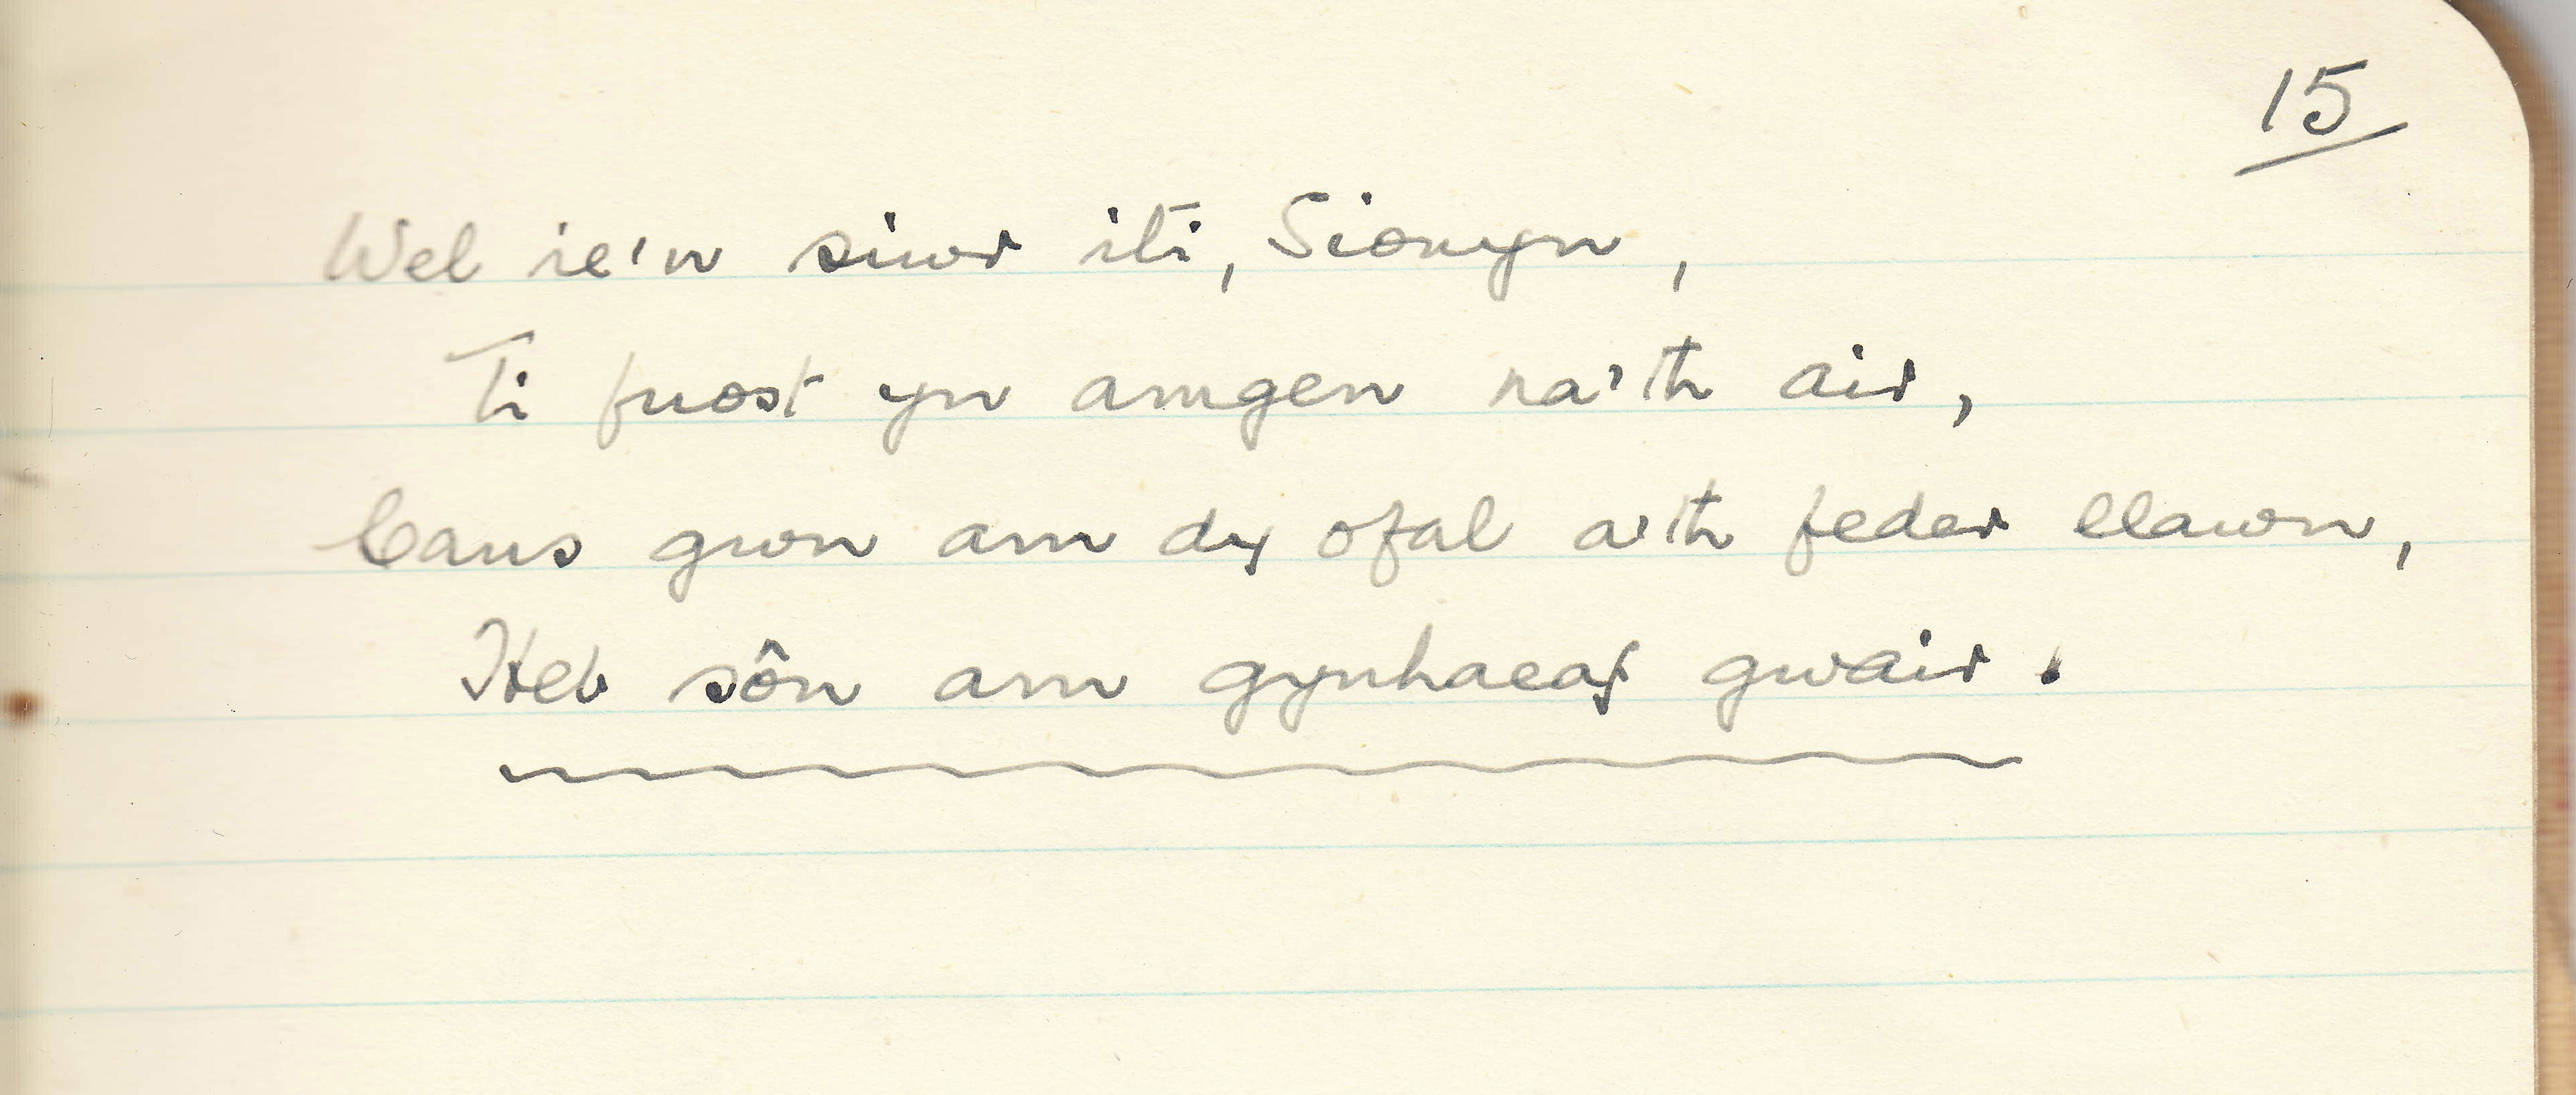 15
Wel ie'n siwr iti, Sionyn,
Ti fuost yn amgen na'th air,
Caws gwn am dy ofal a'th feder llawn,
Heb sôn am gynhaeaf gwair.